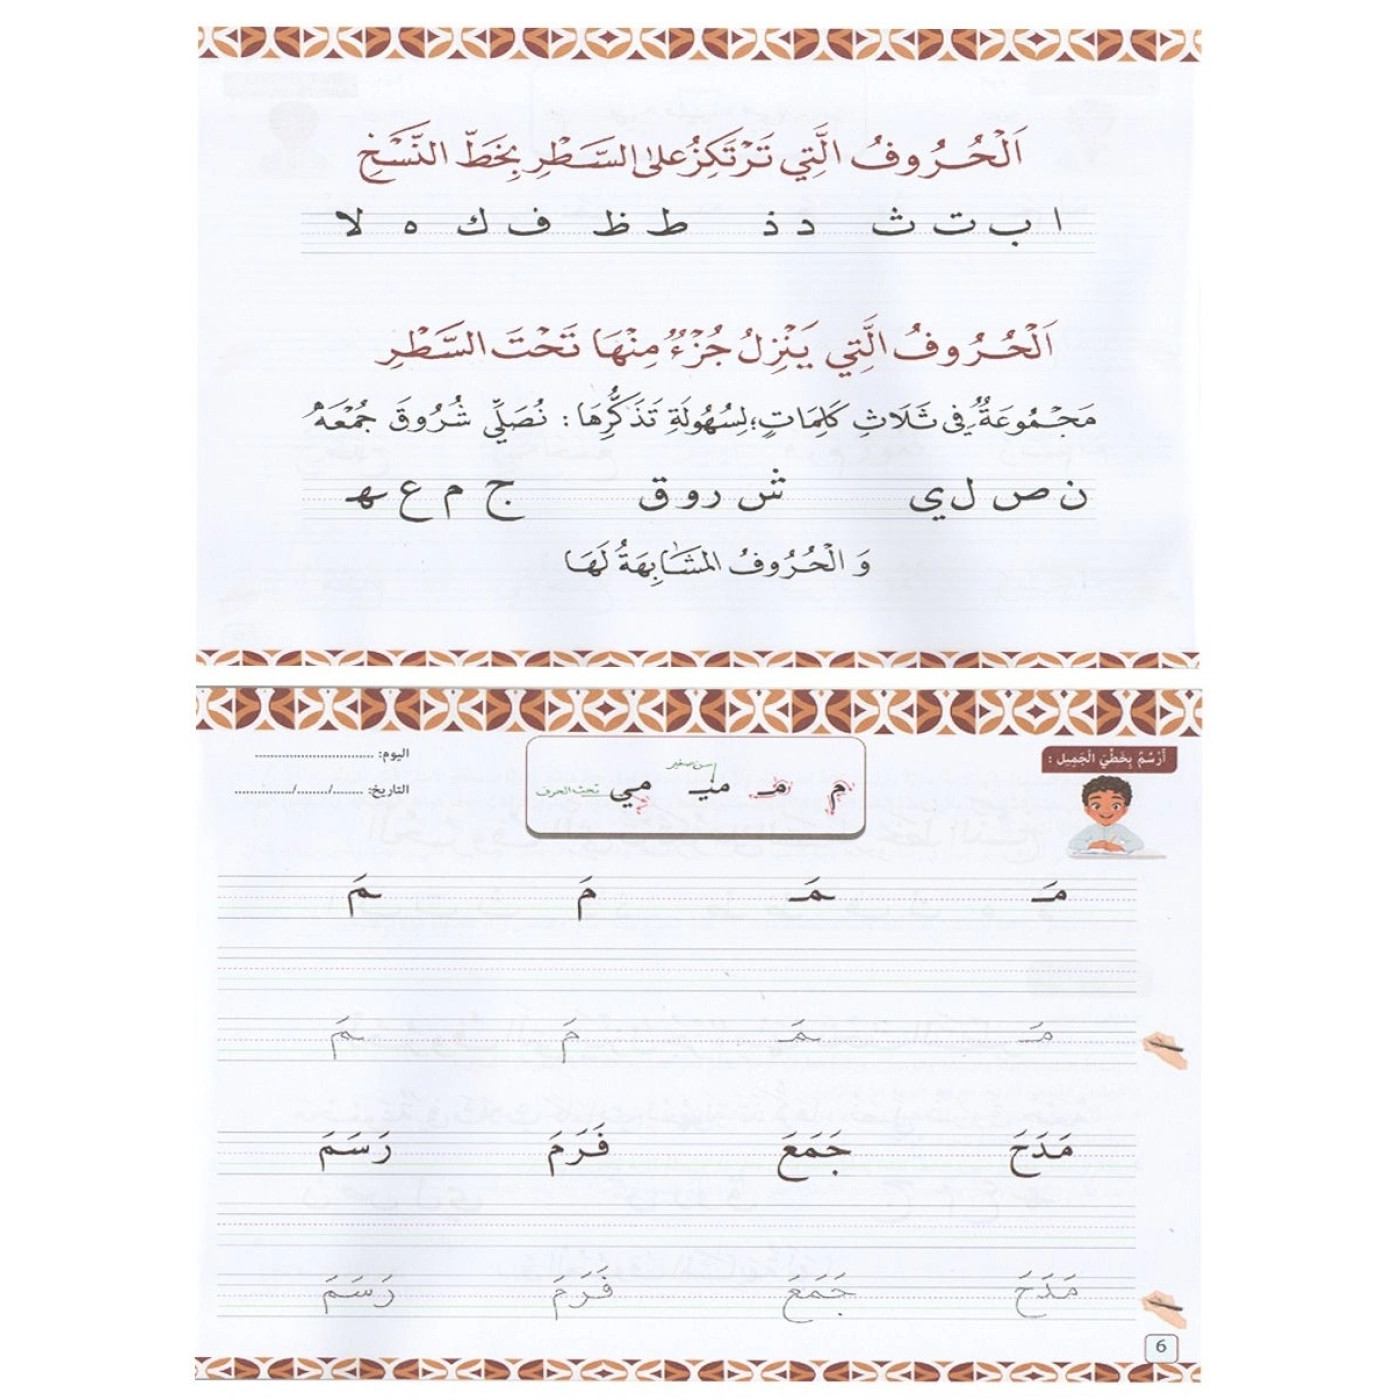 اَلْحُرُوفُ الَّتِي تَرْتَكِزُ عَلَى السَّطْرِ بِخَطِّ النَّسْخِ
ا ب ت ث د ذ ط ظ ف ك ه لا
اَلْحُرُوفُ الَّتِي يَنْزِلُ جُزْءٌ مِنْهَا تَحْتَ السَّطْرِ
مَجْمُوعَةٌ فِي ثَلَاثِ كَلِمَاتٍ؛ لِسُهُولَةِ تَذَكُّرِهَا: نُصَلِّي شُرُوقَ جُمْعَه
ن ص ل ي ش ر و ق ج م ع ه
وَ الْحُرُوفُ المْشَابِهَةُ لَهَا
أَرْسُمُ بِخَطِّيَ الْجَمِيلِ :
سن صغير
م مـ منـ مي تحت الحرف
اليوم: ..............................
التاريخ: ......../......../...............
مَـ ـمَـ مَ ـمَ
مَـ ـمَـ مَ ـمَ
مَدَحَ جَمَعَ فَرَمَ رَسَمَ
مَدَحَ جَمَعَ فَرَمَ رَسَمَ
6